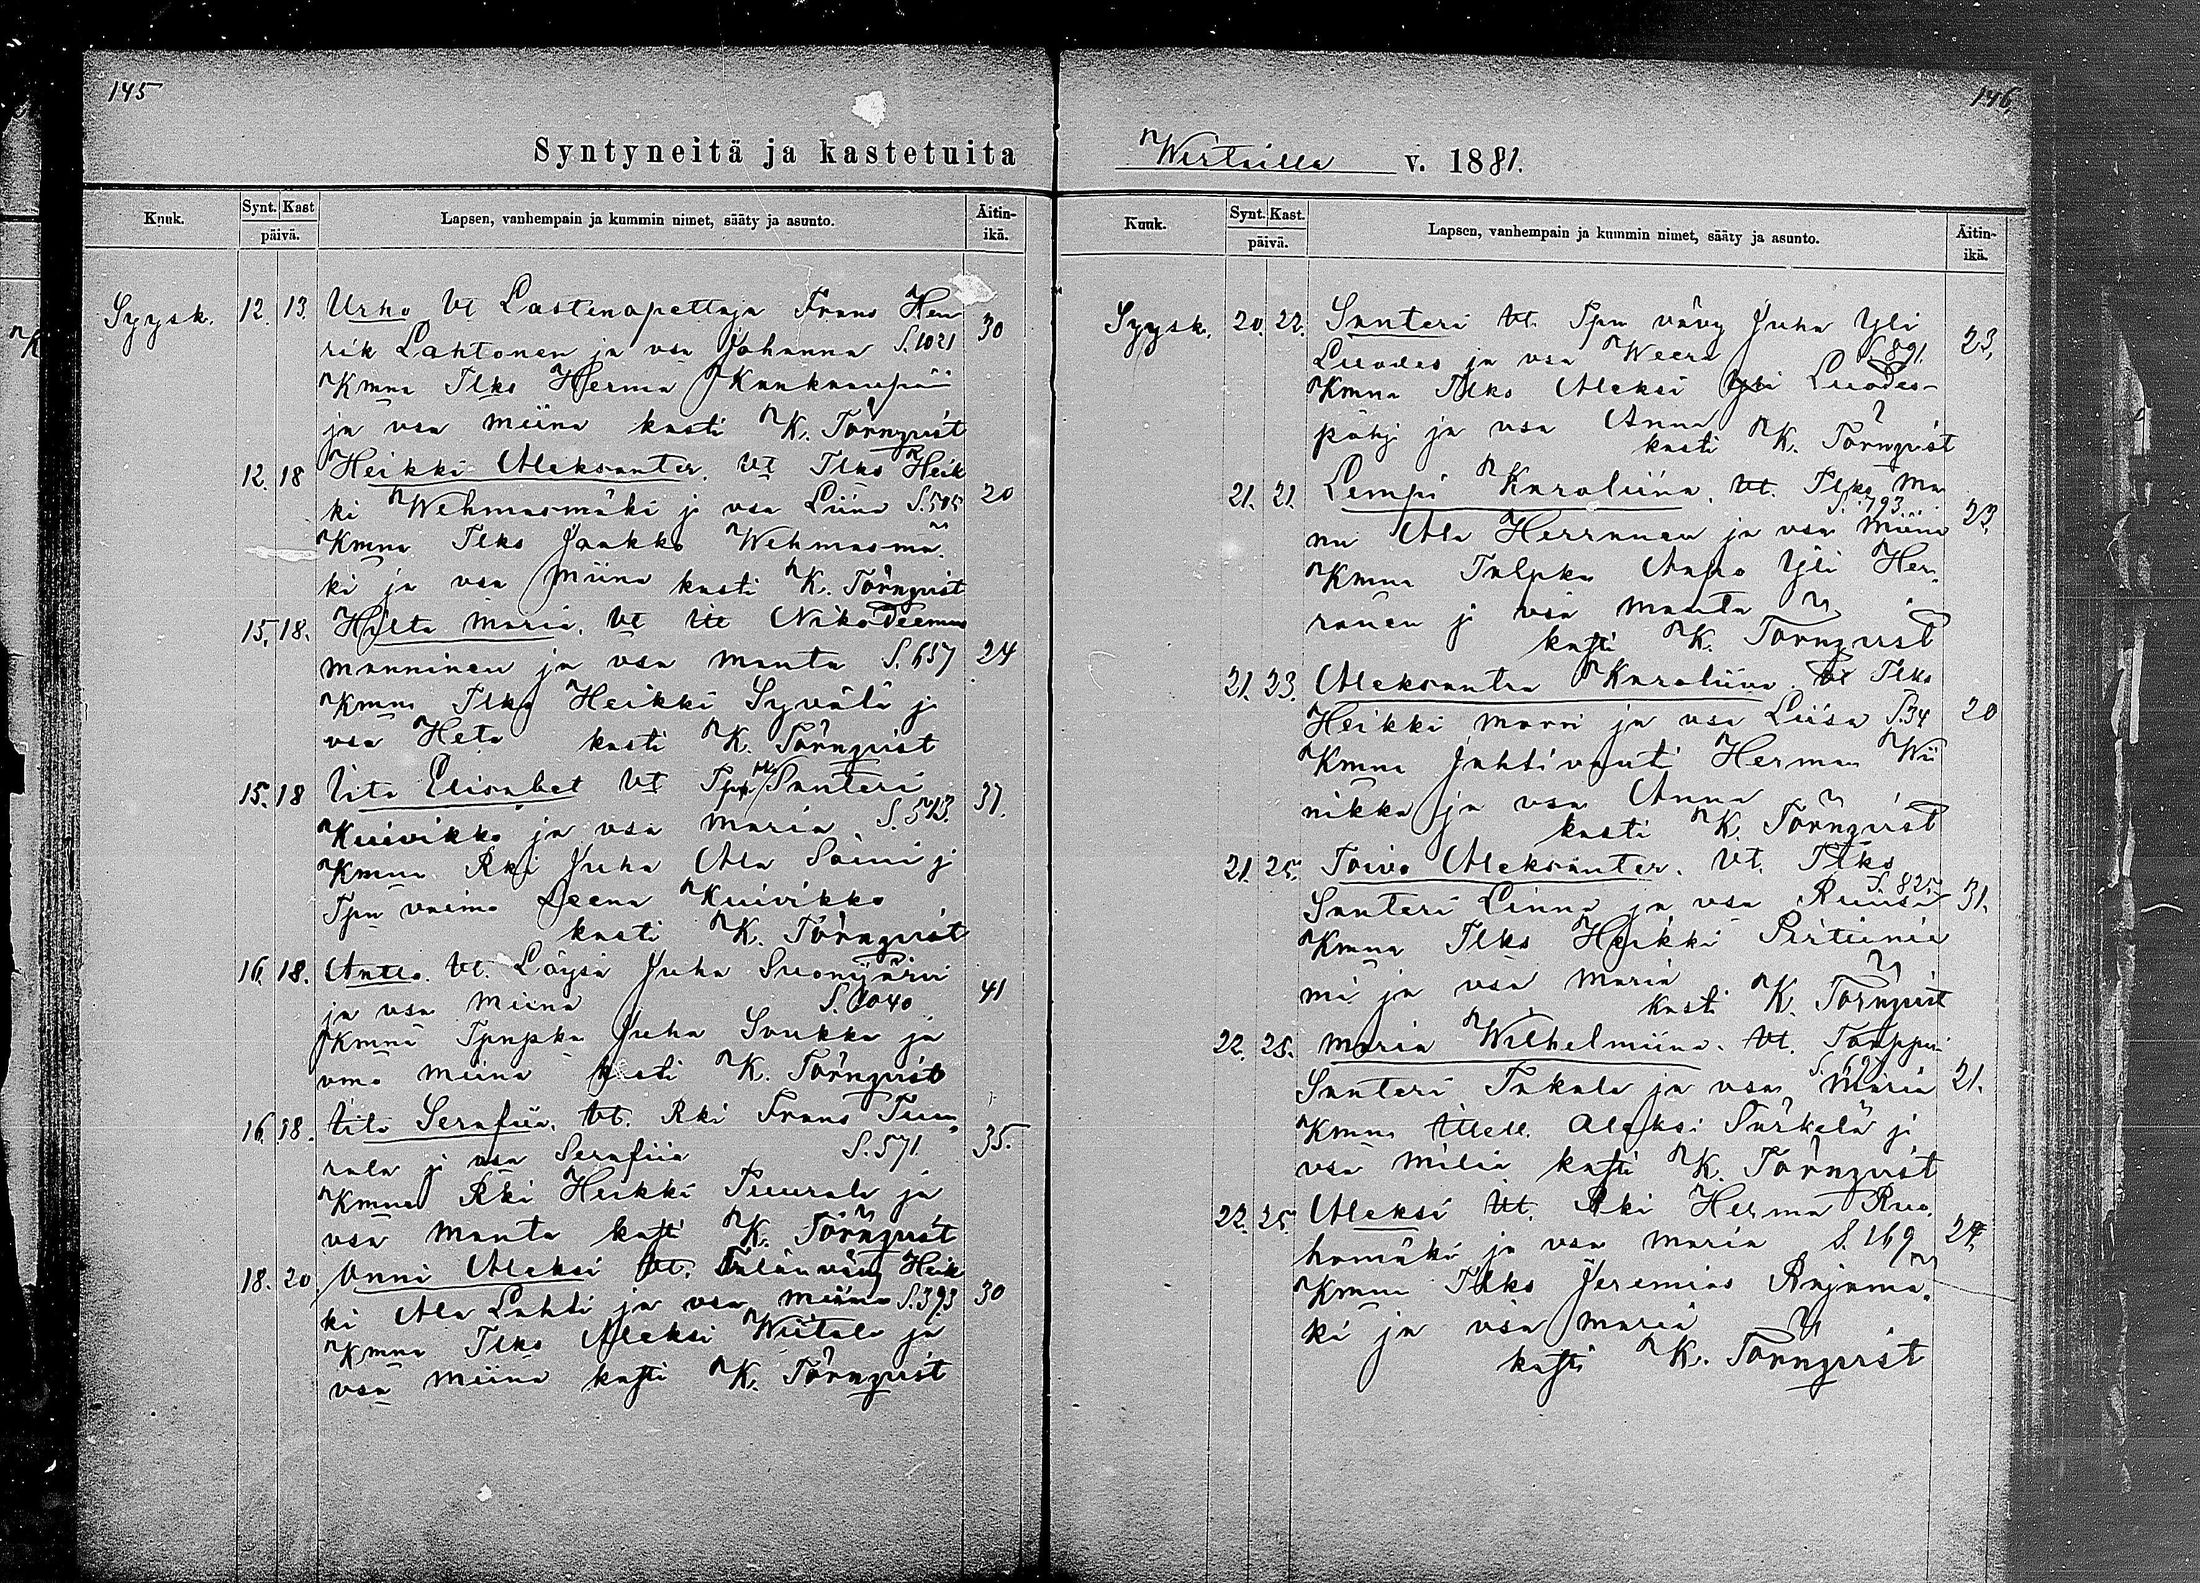 145
Syntyneitä ja kastetuita
Kuuk. Synt. Kast päivä. Lapsen, vanhempain ja kummin nimet, sääty ja asunto. Äitin-ikä.
Syysk. 12. 13. Urho Vt Lastenopettaja Frans Hen
rik Lahtonen ja vsa Johanna S. 1021 30
Kmna Tlks Herma Kankaanpää
ja vsa Miina kasti K. Törnqvist
12. 18 Heikki Aleksanter. Vt Tlks Heik
ki Wehmasmäki j vsa Liina S. 505 20
Kmna Tlks Jaakko Wehmasmä
ki ja vsa Miina kasti K. Törnqvist
15. 18. Hilta Maria. Vt Itt Nikodeemus
Manninen ja vsa Manta S. 657 24
Kmna Tlks Heikki Syvälä j
vsa Heta kasti K. Törnqvist
15. 18 Iita Elisabet Vt Santeri
Kuivikko ja vsa Maria S. 513. 37.
Kmna Rki Juha Ala Soini j
Tpn vaimo Leena Kuivikko
kasti K. Törnqvist
16. 18. Anto. Vt. Löysä Juha Suonijärvi
ja vsa Miina S. 1040 41
Kmna Juha Soukka ja
vmo Miina kasti K. Törnqvist
16. 18. Iita Serafiia. Vt. Rki Frans Tuu
rala j vsa Serafiia S. 571 35.
Kmna Rki Heikki Tuurala ja
vsa Manta kasti K. Törnqvist
18. 20. Onni Aleksi Vt. Talänvävy Heik
ki Ala Lahti ja vsa Miina S. 393 30
Kmna Tlks Aleksi Wiitala ja
vsa Miina kasti K. Törnqvist
146
Wirtailla v. 1881.
Kuuk. Synt. Kast. päivä. Lapsen, vanhempain ja kummin nimet, sääty ja asunto. Äitin-ikä.
Syysk. 20. 22. Santeri Vt. Tpn vävy Juha Yli
Luodes ja vsa Weera S. 891. 23.
Kmna Tlks Aleksi Yli Luodes-
pohj ja vsa Anna
kasti K. Törnqvist
21. 21. Lempi Karoliina. Vt. Tlks Ma
nu Ala Herranen ja vsa Miina S. 793 23.
Kmna Talpka Yli Her
ranen j vsa Manta
kasti K. Törnqvist
21. 23. Aleksantra Karoliina Vt Tlks
Heikki Marri ja vsa Liisa S. 34 20
Kmna Jahtivouti Herman Wii
nikka ja vsa Anna
kasti K. Törnqvist
21. 25. Toivo Aleksanter. Vt. Tlks
Santeri Linna ja vsa Ruusa S. 825 31.
Kmna Tlks Heikki Pirttinie
mi ja vsa Maria
kasti K. Törnqvist
22. 25. Maria Wilhelmiina. Vt. Torppri
Santeri Takala ja vsa Maria 21.
Kmna Itsell. Aleksi Särkelä j
vsa Milia kasti K. Törnqvist
22. 25 Aleksi Vt. Rki Herma Ruo
homäki ja vsa Maria S. 169 24.
Kmna Tlks Jeremias Rajamä
ki ja vsa Maria
kasti K. Törnqvist